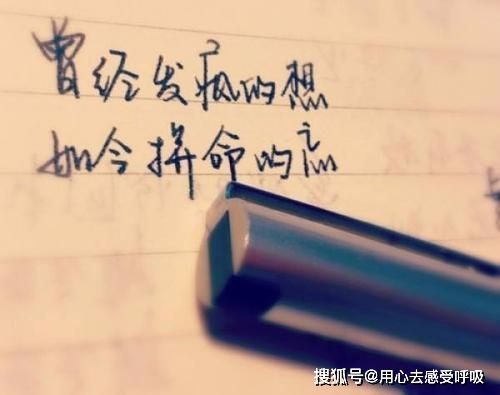 曾经发疯的想
如今拼命的忘
搜狐号@用心去感受呼吸